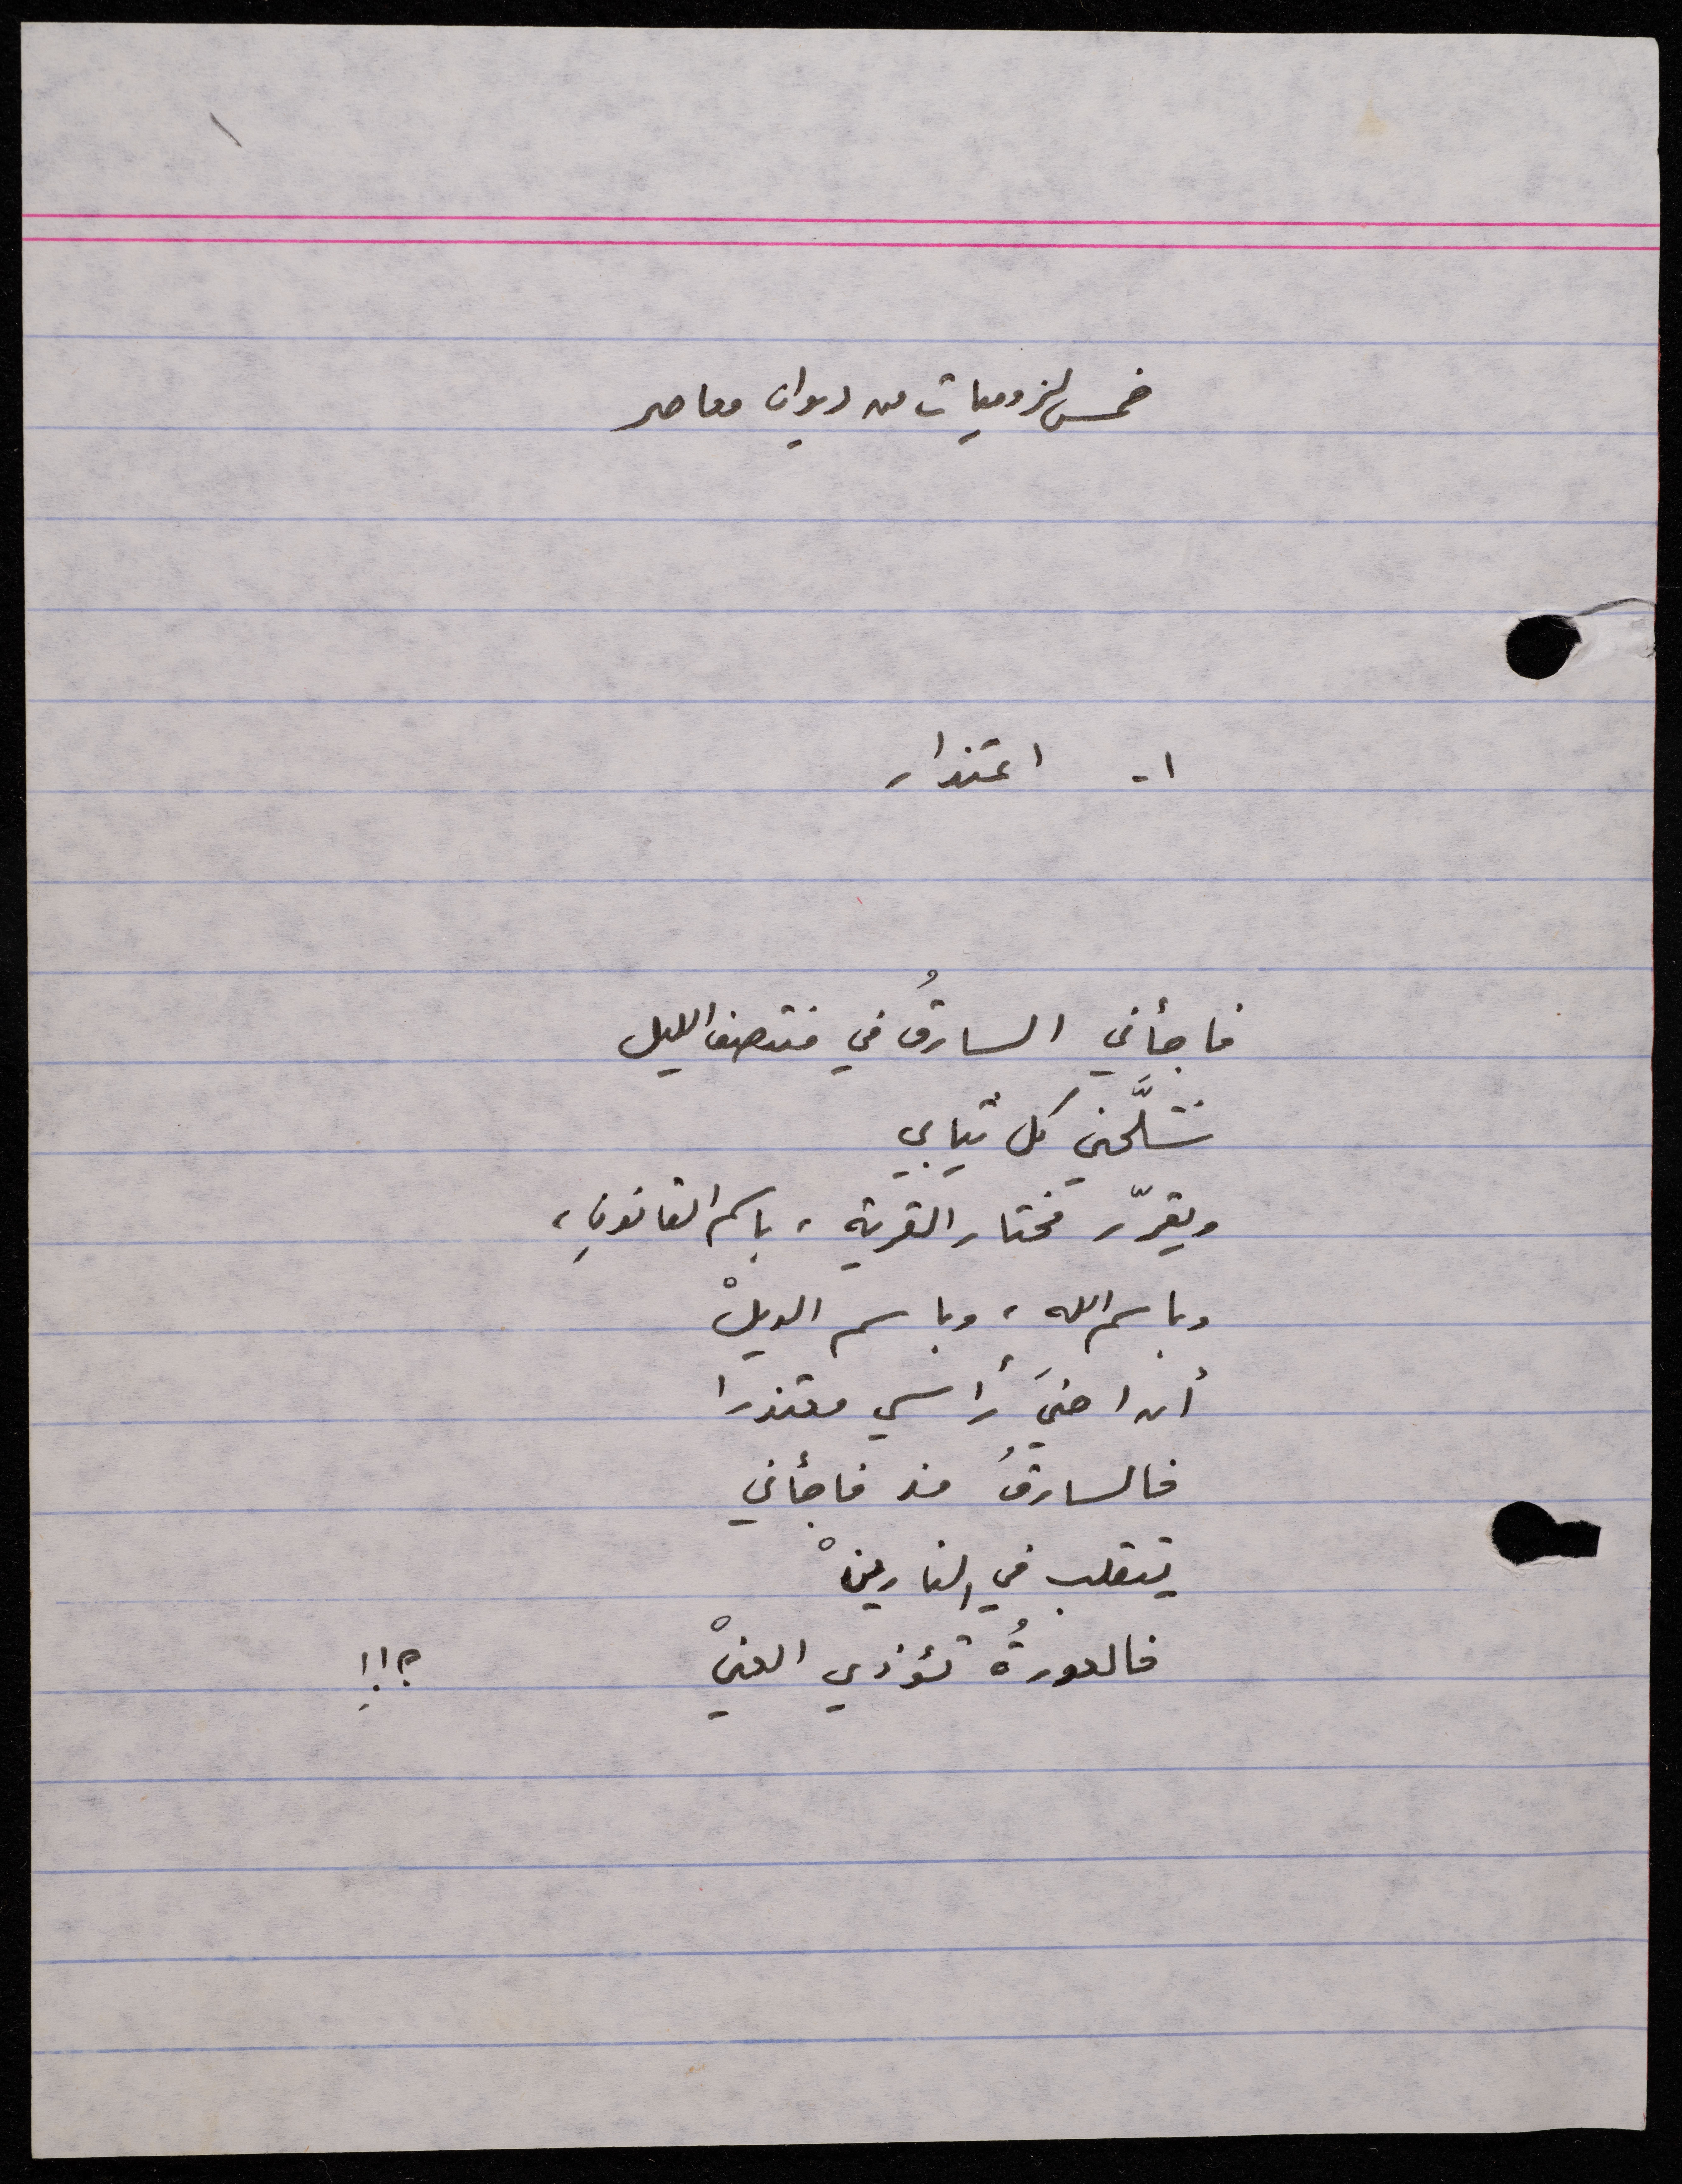 خمس لزوميات من ديوان معاصر
١- اعتذار
فاجأني السارقُ في منتصف الليل
شلَّحني كل ثيابي
ويقرّر مختار القرية ، باسم القانونِ ،
وباسم الله ، وباسم الويلْ
أن احنيَ رأسي معتذرا
فالسارقُ منذ فاجأني
يتقلب في النارينْ
فالعورةُ تؤذي العينْ ؟!!